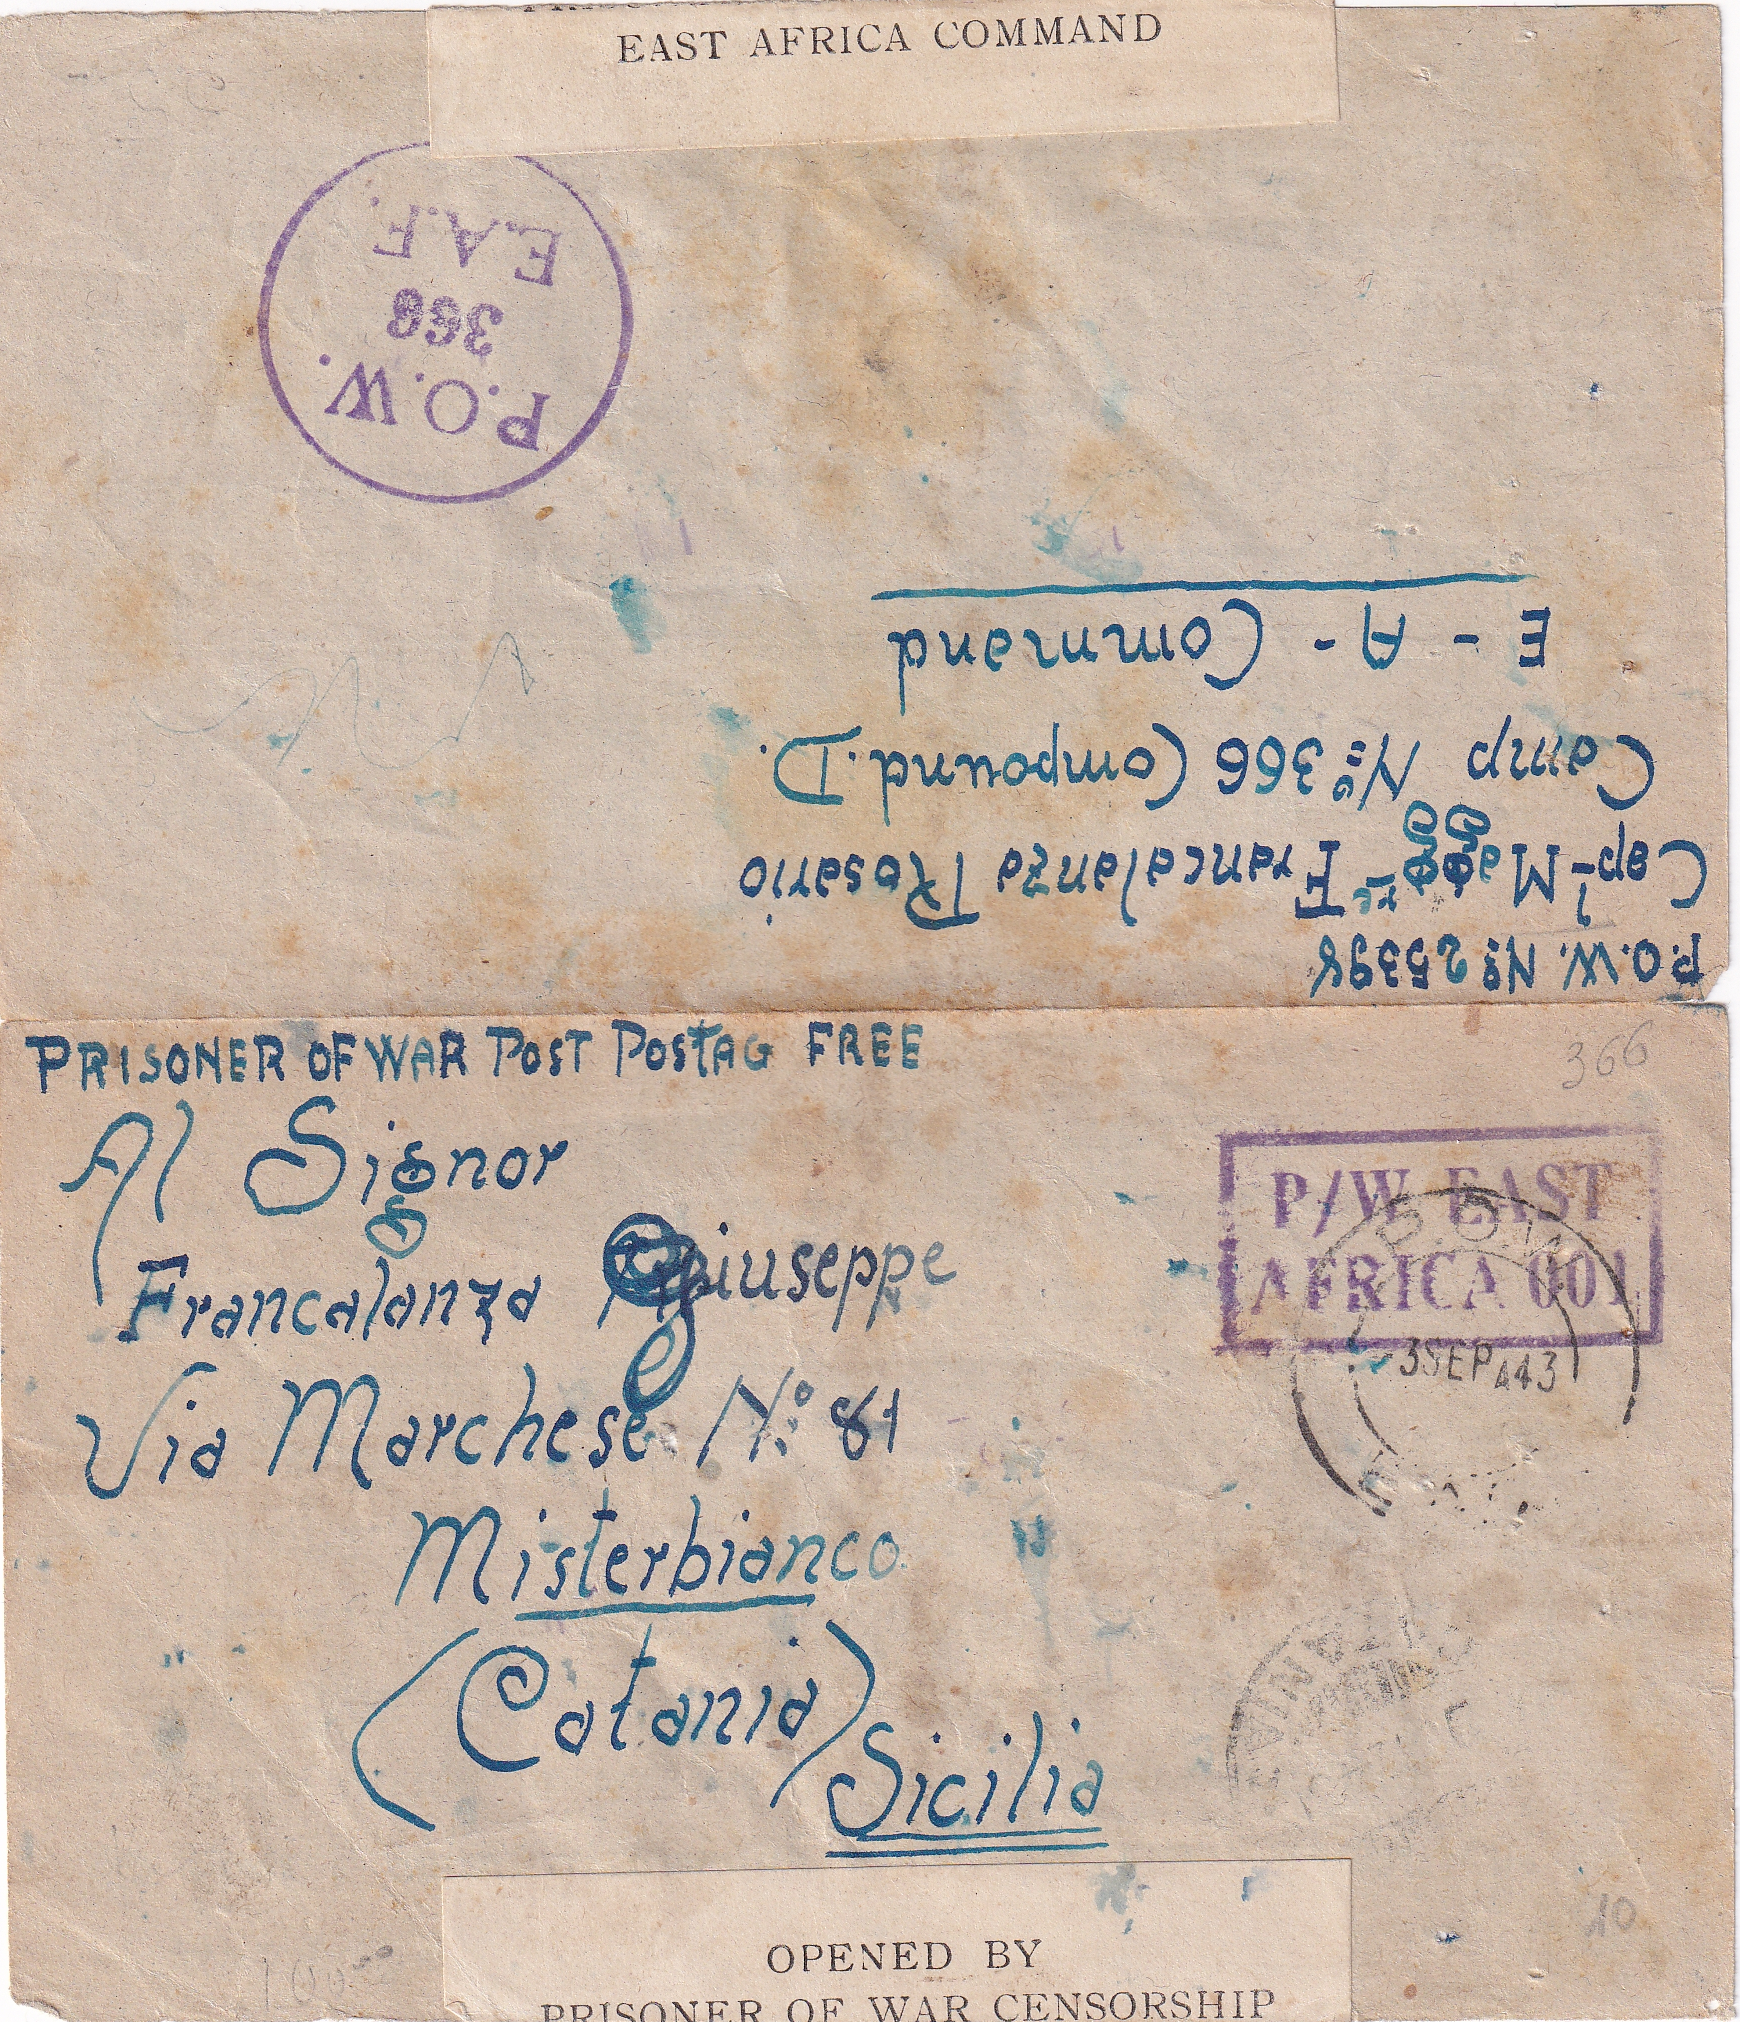 EAST AFRICA COMMAND
P.O.W.
366
E.A.F.
P.O.W. Nº 25398
Cap. Magg. Francalanza Rosario
Camp Nº 366 Compound. D.
E - A - Command
PRISONER OF WAR POST POSTAG FREE
366
Al Signor
P/W EAST
AFRICA 001
Francalanza Giuseppe
P.O.W.
3 SEP 443
Via Marchese Nº 81
Misterbianco
(Catania)
CATANIA
Sicilia
10
OPENED BY
PRISONER OF WAR CENSORSHIP